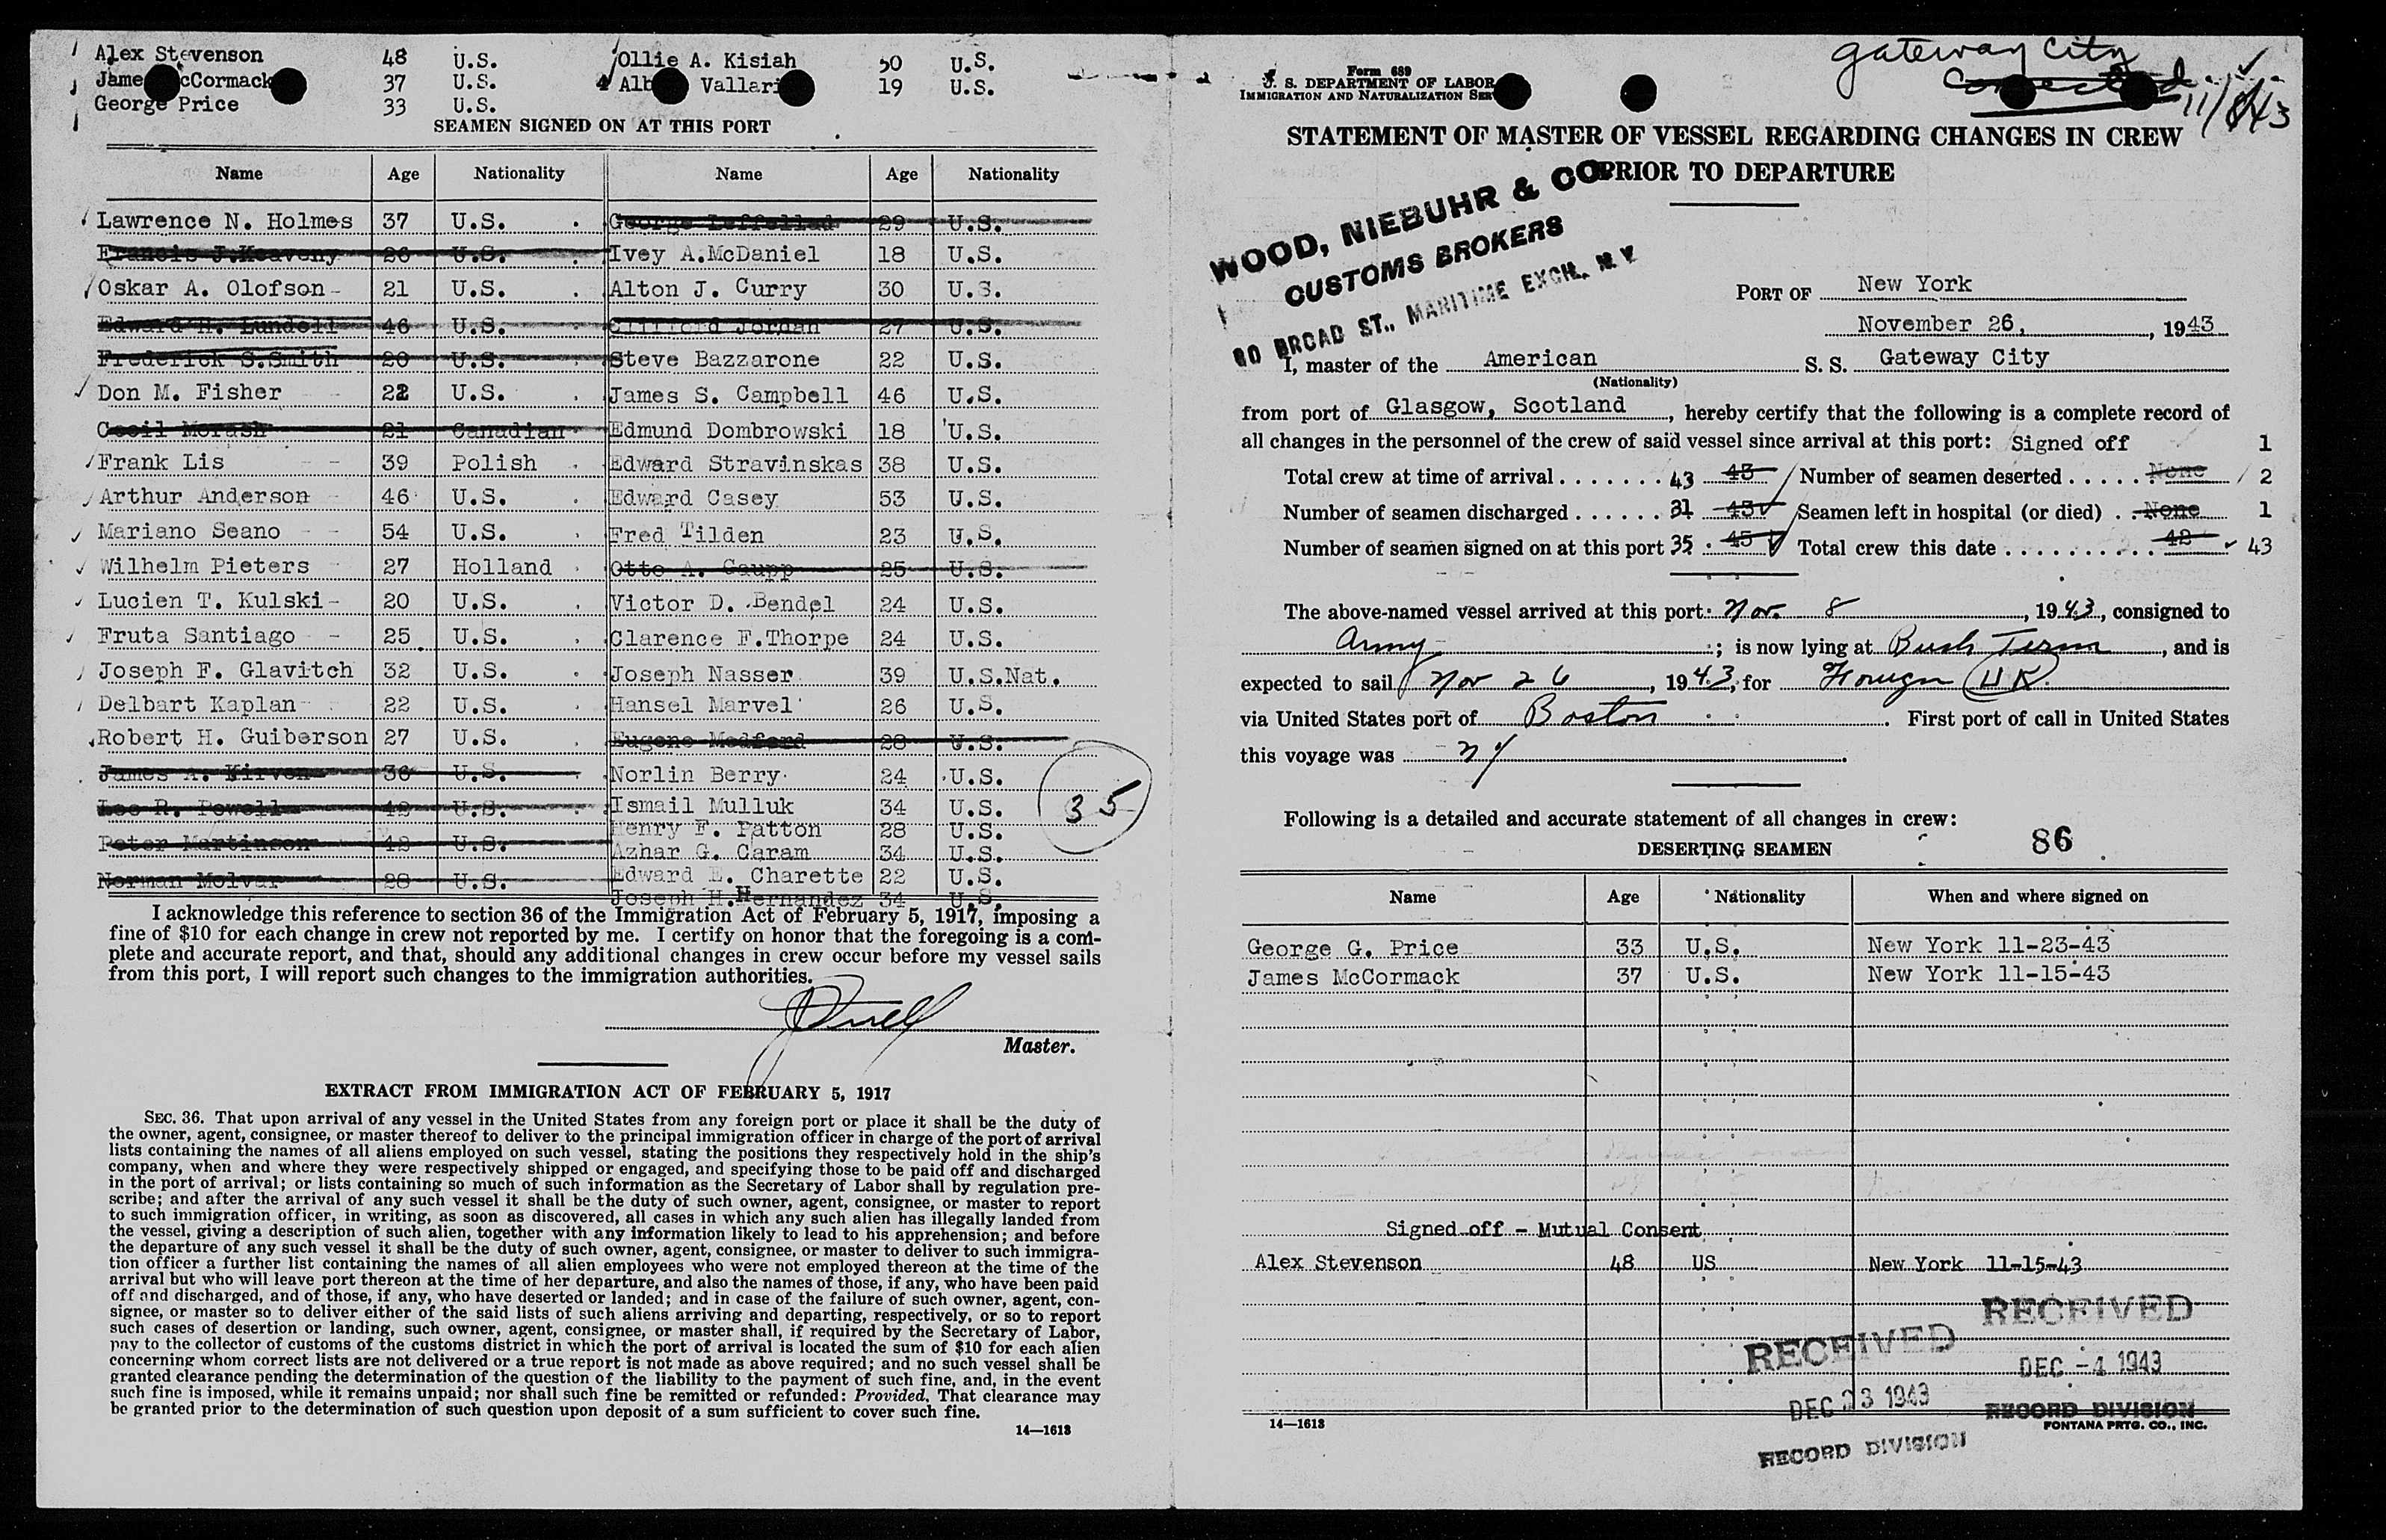 Alex Stevenson 48 U.S. Ollie A. Kisiah 50 U.S.
Jame cCormack 37 U.S. Alb Vallari 19 U.S.
George Price 33 U.S.
SEAMEN SIGNED ON AT THIS PORT
Name Age Nationality Name Age Nationality
Lawrence N. Holmes 37 U.S. George Leffellad 29 U.S.
Francis J.Keaveny 26 U.S. Ivey A.McDaniel 18 U.S.
Oskar A. Olofson- 21 U.S. Alton J. Curry 30 U.S.
Edward H. Lundell 46 U.S. Clifford Jordan 27 U.S.
Frederick S.Smith 20 U.S. Steve Bazzarone 22 U.S.
Don M. Fisher 22 U.S. James S. Campbell 46 U.S.
Cecil Morash 21 Canadian Edmund Dombrowski 18 U.S.
Frank Lis 39 Polish Edward Stravinskas 38 U.S.
Arthur Anderson 46 U.S. Edward Casey 53 U.S.
Mariano Seano 54 U.S. Fred Tilden 23 U.S.
Wilhelm Pieters 27 Holland Otto A. Gaupp 25 U.S.
Lucien T. Kulski- 20 U.S. Victor D. Bendel 24 U.S.
Fruta Santiago - 25 U.S. Clarence F.Thorpe 24 U.S.
Joseph F. Glavitch 32 U.S. Joseph Nasser 39 U.S.Nat.
Delbart Kaplan 22 U.S. Hansel Marvel 26 U.S.
Robert H. Guiberson 27 U.S. Eugene Medford 28 U.S.
James A. Kirven 36 U.S. Norlin Berry 24 U.S.
Leo R. Powell 42 U.S. Ismail Mulluk 34 U.S.
Henry F. Patton 28 U.S.
Peter Martinson 42 U.S. Azhar G. Caram 34 U.S.
Norman Molvar 28 U.S. Edward E. Charette 22 U.S.
Joseph H.Hernandez 34 U.S.
35
I acknowledge this reference to section 36 of the Immigration Act of February 5, 1917, imposing a
fine of $10 for each change in crew not reported by me. I certify on honor that the foregoing is a com-
plete and accurate report, and that, should any additional changes in crew occur before my vessel sails
from this port, I will report such changes to the immigration authorities.
Master.
EXTRACT FROM IMMIGRATION ACT OF FEBRUARY 5, 1917
SEC. 36. That upon arrival of any vessel in the United States from any foreign port or place it shall be the duty of
the owner, agent, consignee, or master thereof to deliver to the principal immigration officer in charge of the port of arrival
lists containing the names of all aliens employed on such vessel, stating the positions they respectively hold in the ship's
company, when and where they were respectively shipped or engaged, and specifying those to be paid off and discharged
in the port of arrival; or lists containing so much of such information as the Secretary of Labor shall by regulation pre-
scribe; and after the arrival of any such vessel it shall be the duty of such owner, agent, consignee, or master to report
to such immigration officer, in writing, as soon as discovered, all cases in which any such alien has illegally landed from
the vessel, giving a description of such alien, together with any information likely to lead to his apprehension; and before
the departure of any such vessel it shall be the duty of such owner, agent, consignee, or master to deliver to such immigra-
tion officer a further list containing the names of all alien employees who were not employed thereon at the time of the
arrival but who will leave port thereon at the time of her departure, and also the names of those, if any, who have been paid
off and discharged, and of those, if any, who have deserted or landed; and in case of the failure of such owner, agent, con-
signee, or master so to deliver either of the said lists of such aliens arriving and departing, respectively, or so to report
such cases of desertion or landing, such owner, agent, consignee, or master shall, if required by the Secretary of Labor,
pay to the collector of customs of the customs district in which the port of arrival is located the sum of $10 for each alien
concerning whom correct lists are not delivered or a true report is not made as above required; and no such vessel shall be
granted clearance pending the determination of the question of the liability to the payment of such fine, and, in the event
such fine is imposed, while it remains unpaid; nor shall such fine be remitted or refunded: Provided, That clearance may
be granted prior to the determination of such question upon deposit of a sum sufficient to cover such fine.
14—1618
Gateway City
Corrected
Form 689
U. S. DEPARTMENT OF LABOR
IMMIGRATION AND NATURALIZATION SER
STATEMENT OF MASTER OF VESSEL REGARDING CHANGES IN CREW
PRIOR TO DEPARTURE
WOOD, NIEBUHR & CO
CUSTOMS BROKERS
80 BROAD ST., MARITIME EXCH., N.Y
PORT OF New York
November 26, , 1943
I, master of the American S. S. Gateway City
(Nationality)
from port of Glasgow, Scotland , hereby certify that the following is a complete record of
all changes in the personnel of the crew of said vessel since arrival at this port: Signed off 1
Total crew at time of arrival . . . . . . . 43 45 Number of seamen deserted . . . . . . None 2
Number of seamen discharged . . . . . . 31 43 Seamen left in hospital (or died) . . None 1
Number of seamen signed on at this port 35 45 Total crew this date . . . . . . . . . . . 42 43
The above-named vessel arrived at this port: Nov. 8 , 1943, consigned to
Army ; is now lying at Bush Term , and is
expected to sail Nov 26 , 1943, for Foreign UK
via United States port of Boston . First port of call in United States
this voyage was NY .
Following is a detailed and accurate statement of all changes in crew:
86
DESERTING SEAMEN
Name Age Nationality When and where signed on
George G. Price 33 U.S. New York 11-23-43
James McCormack 37 U.S. New York 11-15-43
Signed off - Mutual Consent
Alex Stevenson 48 US New York 11-15-43
RECEIVED
DEC -4 1943
RECORD DIVISION
RECEIVED
DEC 23 1943
RECORD DIVISION
14—1618
FONTANA PRTG. CO., INC.